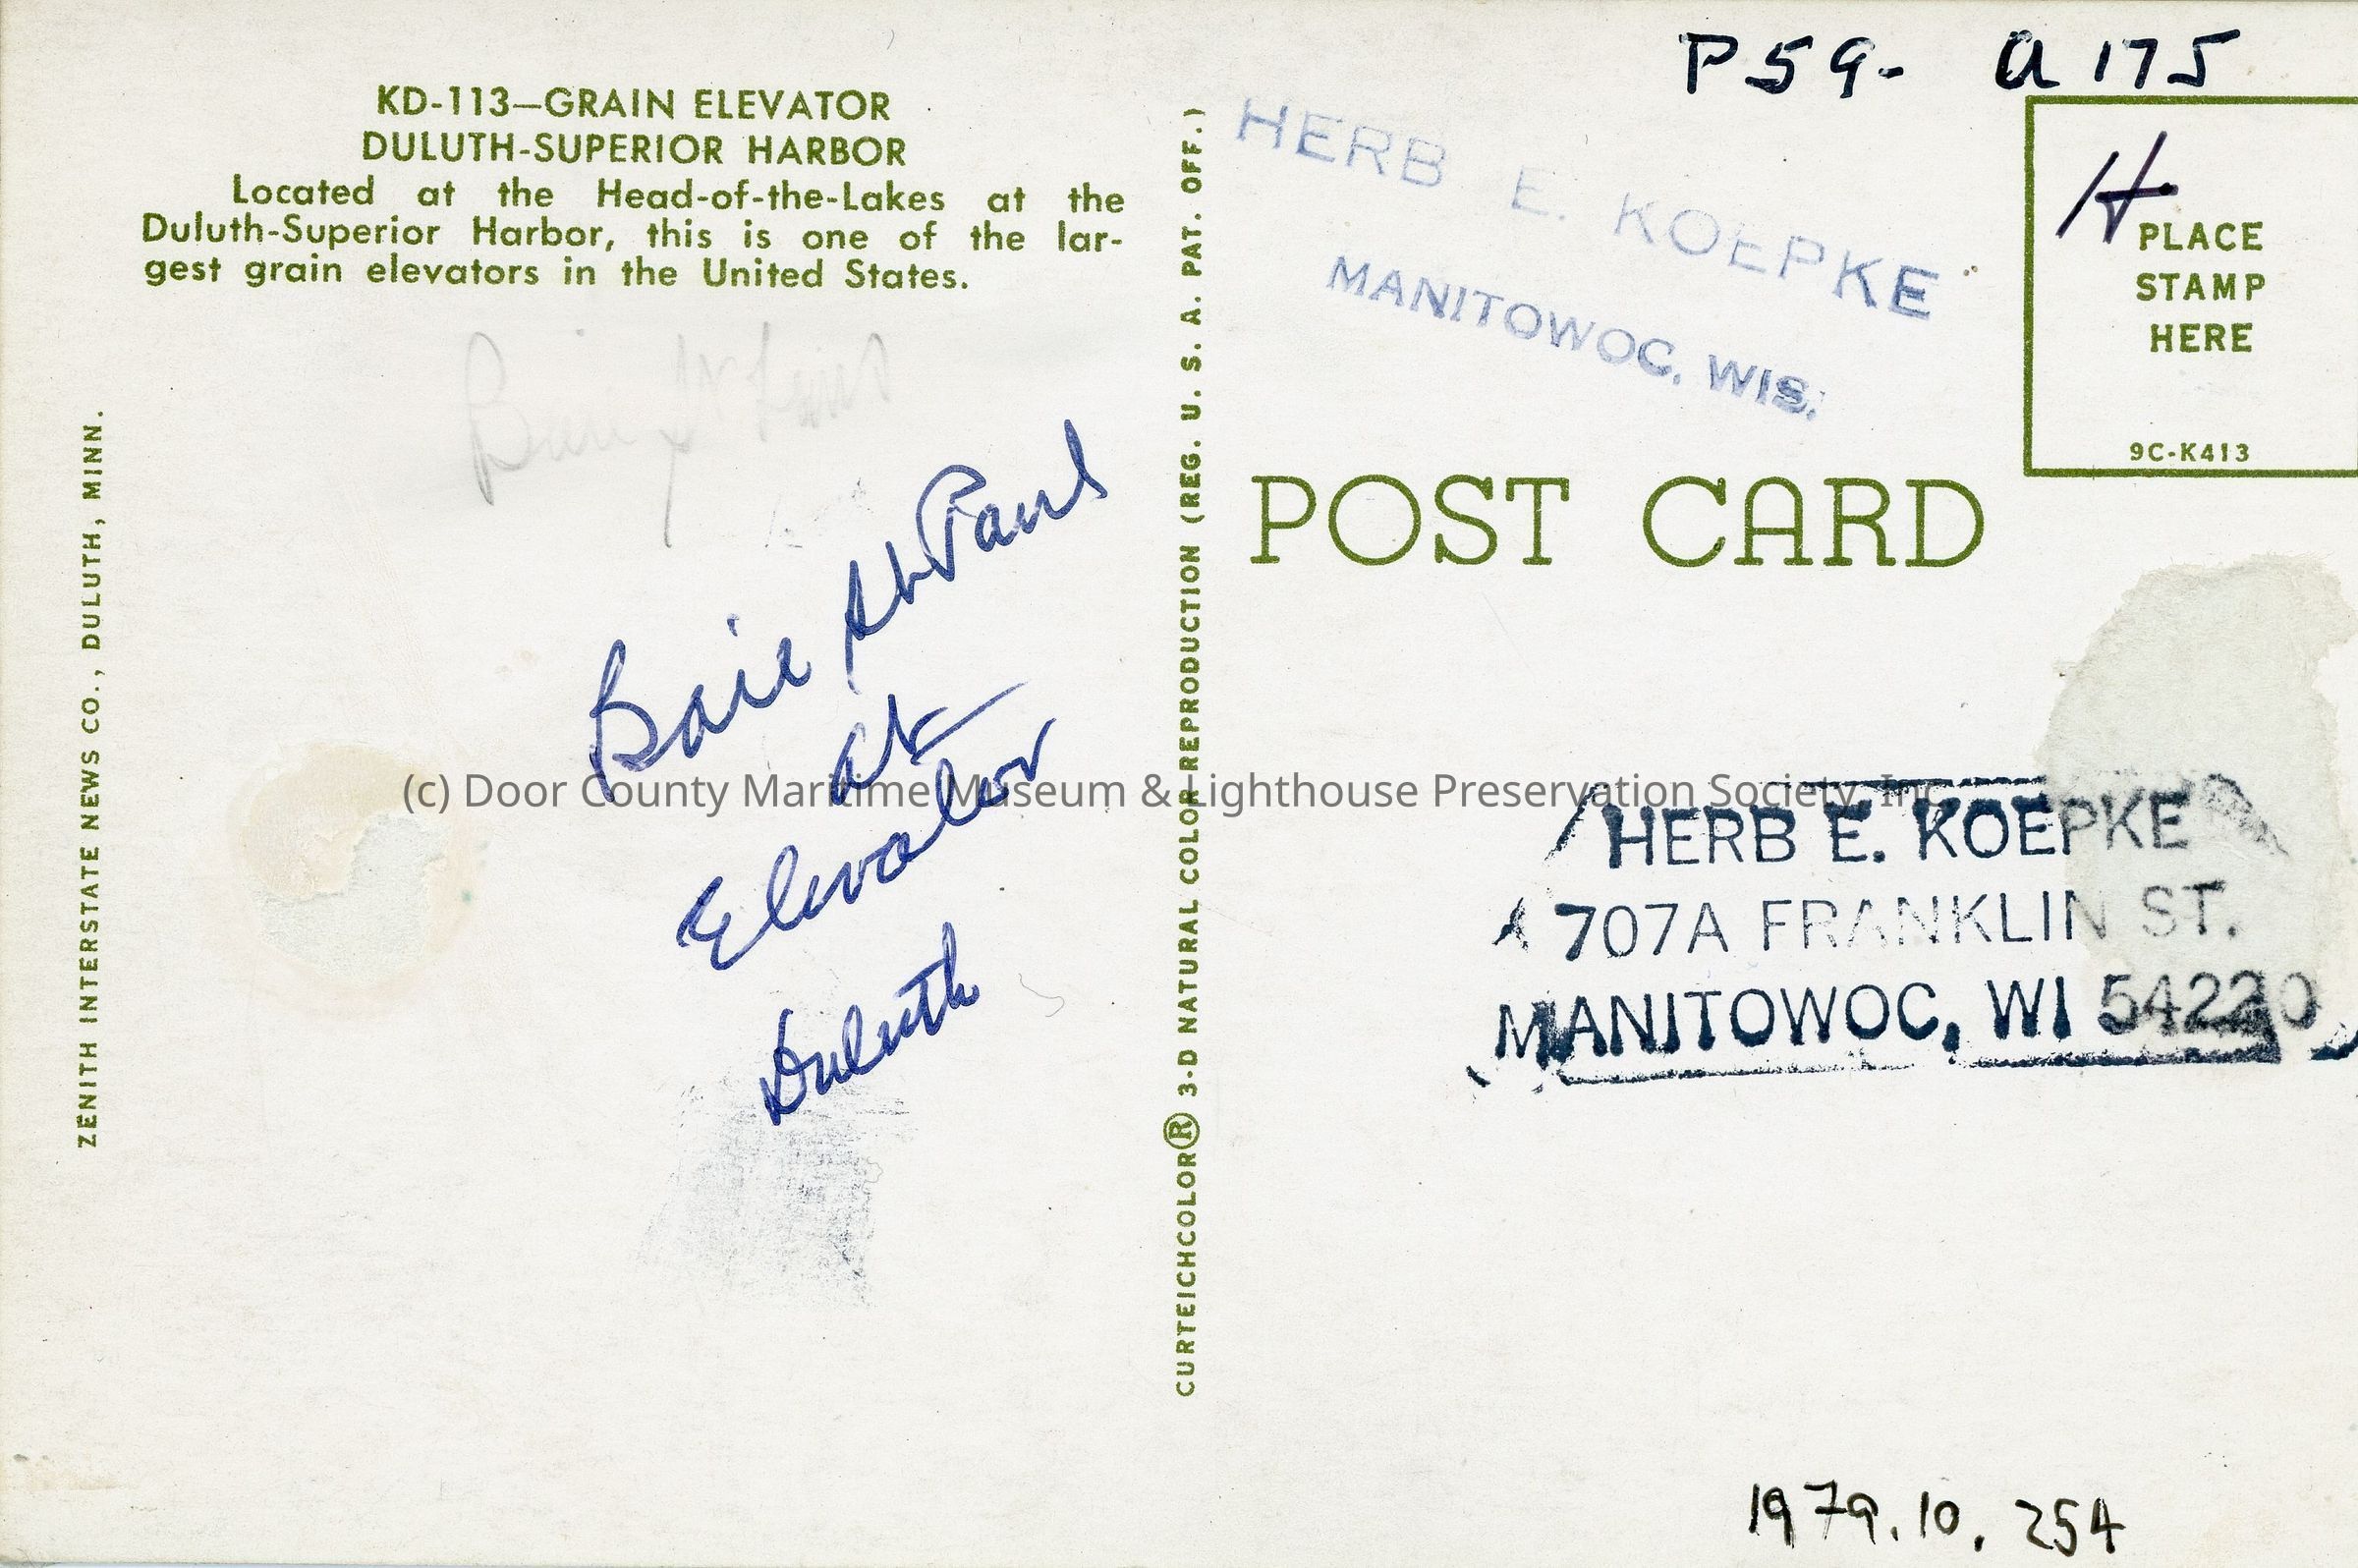 P59- a175
KD-113—GRAIN ELEVATOR
DULUTH-SUPERIOR HARBOR
Located at the Head-of-the-Lakes at the
Duluth-Superior Harbor, this is one of the lar-
gest grain elevators in the United States.
ZENITH INTERSTATE NEWS CO., DULUTH, MINN.
Baie St Paul
Baie St Paul
at
Elevator
Duluth
CURTEICHCOLOR® 3-D NATURAL COLOR REPRODUCTION (REG. U. S. A. PAT. OFF.)
HERB E. KOEPKE
MANITOWOC, WIS.
H
PLACE
STAMP
HERE
9C-K413
POST CARD
(c) Door County Maritime Museum & Lighthouse Preservation Society, Inc.
HERB E. KOEPKE
707A FRANKLIN ST.
MANITOWOC, WI 54220
1979.10.254